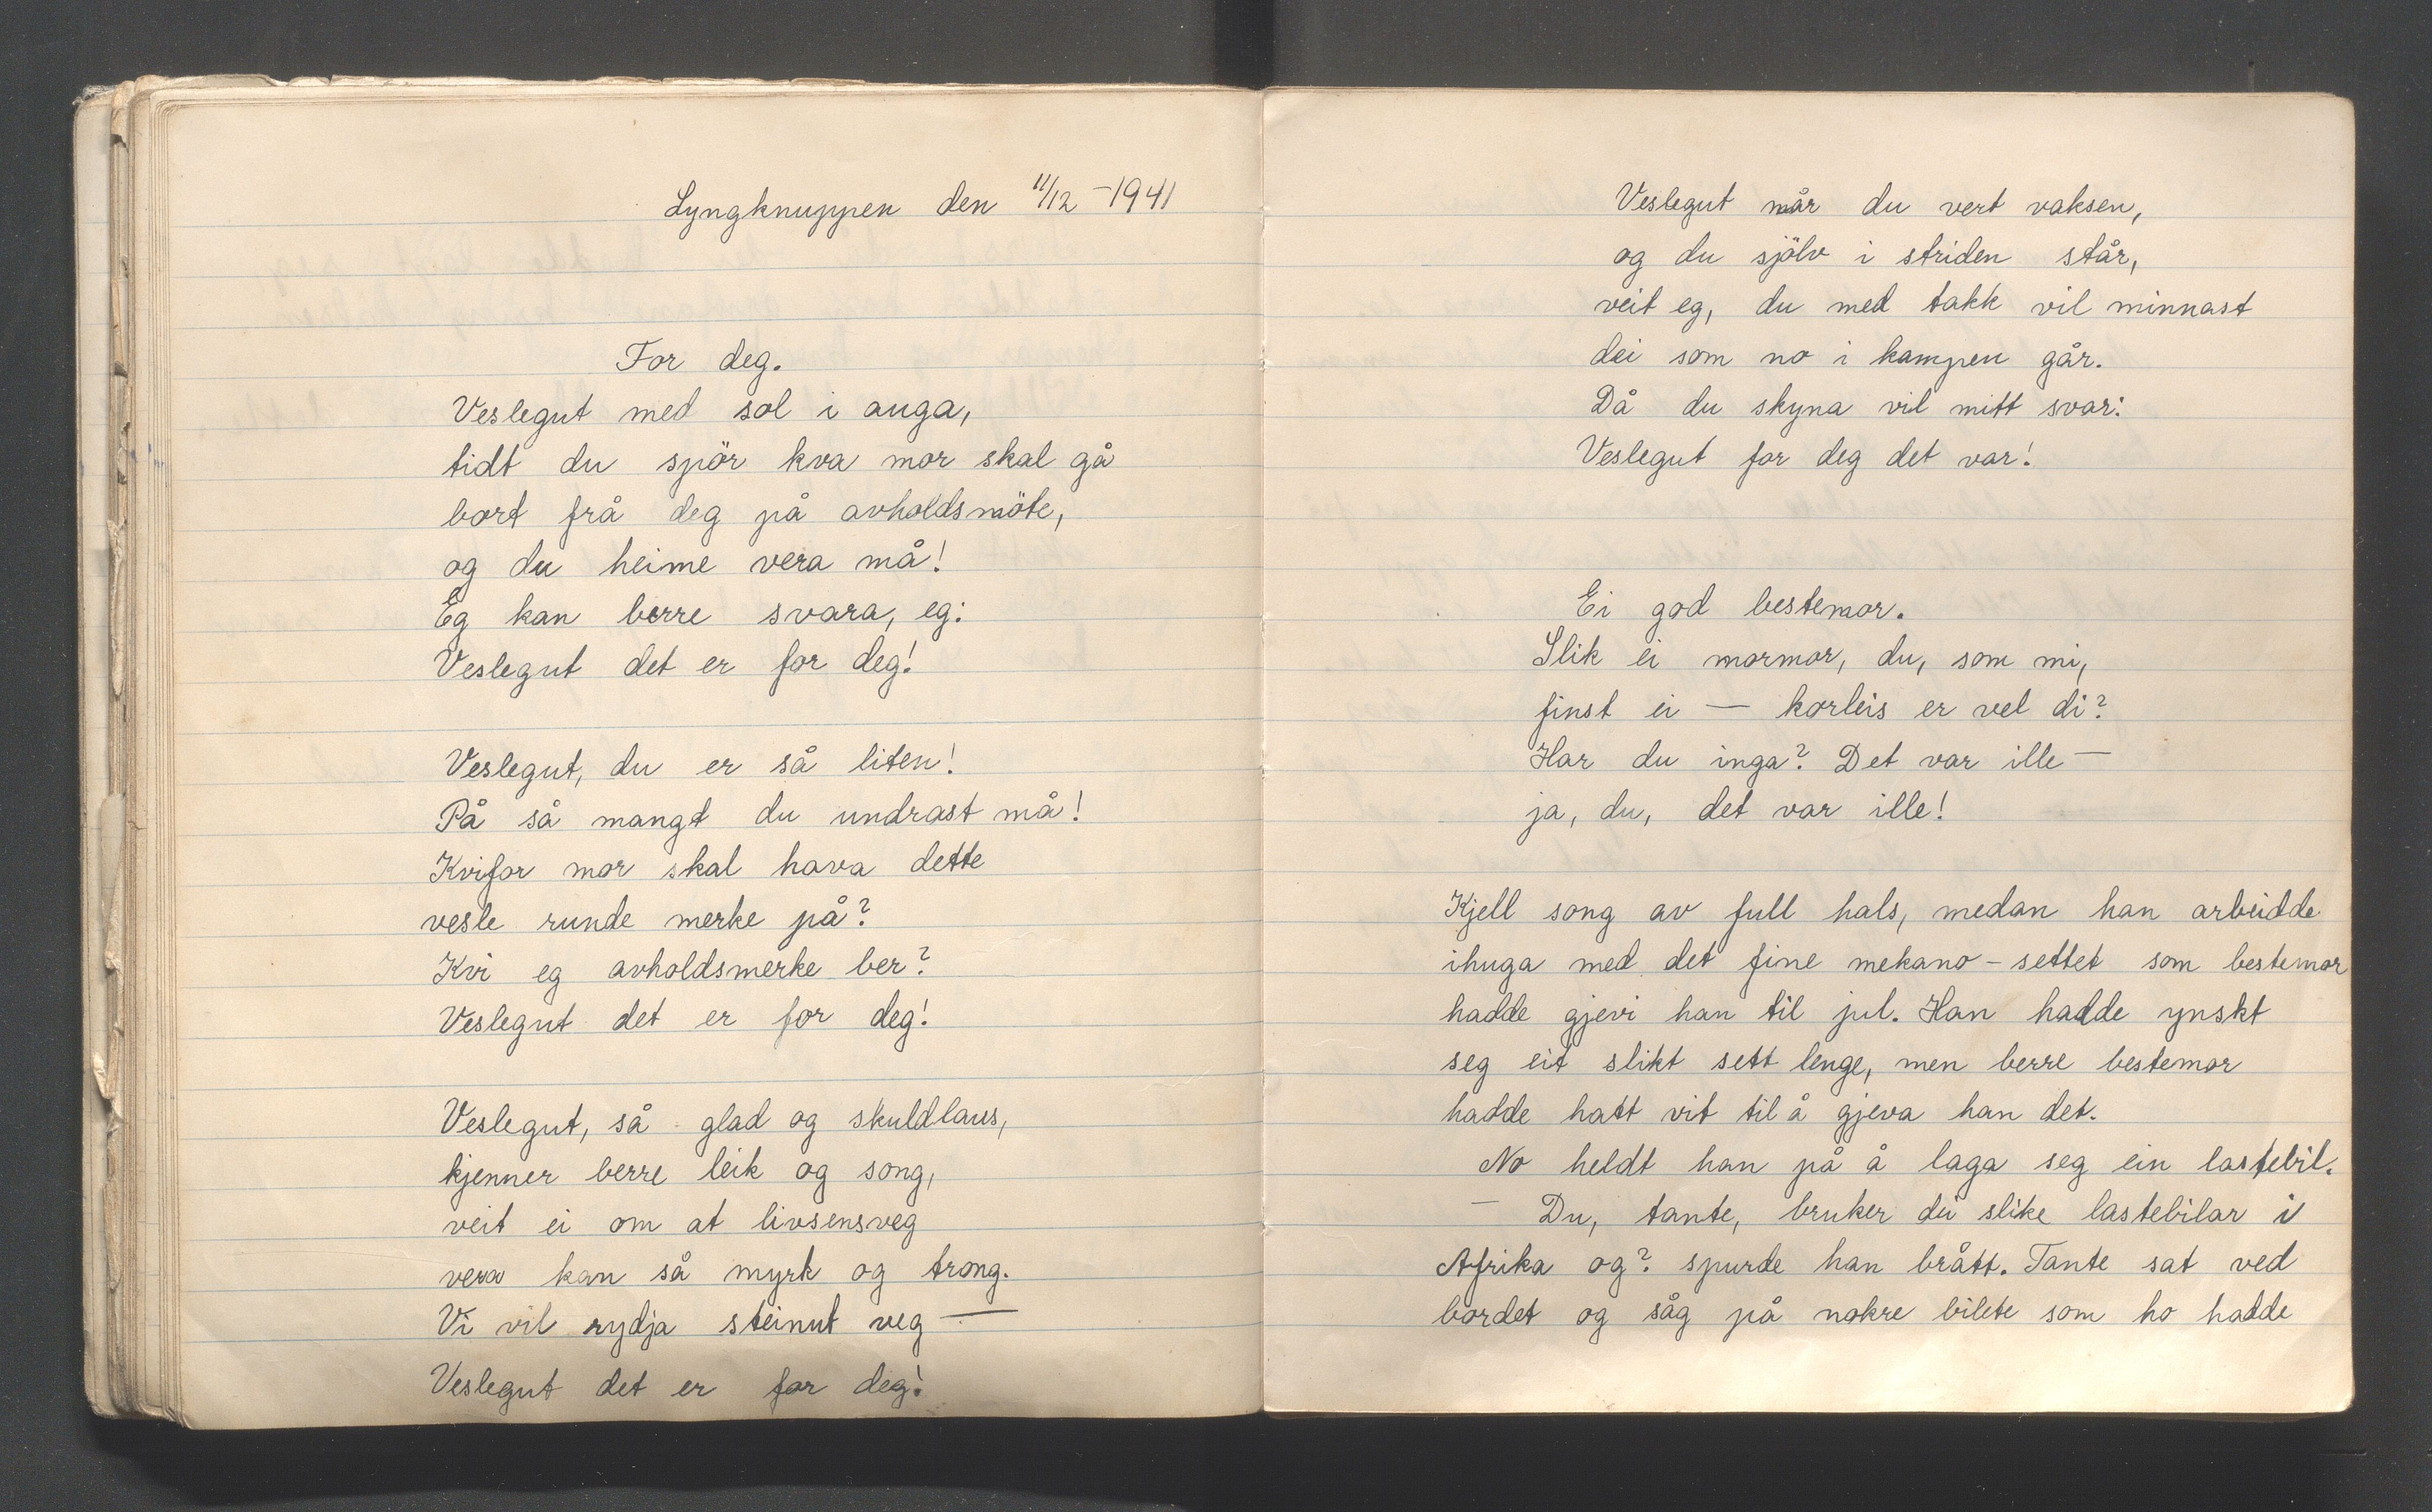 Lyngknuppen den 11/12 -1941
For deg.
Veslegut med sol i auga,
tidt du spör kva mor skal gå
bort frå deg på avholdsmöte,
og du heime vera må!
Eg kan berre svara, eg:
Veslegut det er for deg!
Veslegut, du er så liten!
På så mangt du undrast må!
Kvifor mor skal hava dette
vesle runde merke på?
Kvi eg avholdsmerke ber?
Veslegut det er for deg!
Veslegut, så glad og skuldlaus,
kjenner berre leik og song,
veit ei om at livsensveg
vera kan så myrk og trong.
Vi vil rydja steinut veg —
Veslegut det er for deg!
Veslegut når du vert vaksen,
og du sjölv i striden står,
veit eg, du med takk vil minnast
dei som no i kampen går.
Då du skyna vil mitt svar:
Veslegut for deg det var!
Ei god bestemor.
Slik ei mormor, du, som mi,
finst ei — korleis er vel di?
Har du inga? Det var ille —
ja, du, det var ille!
Kjell song av full hals, medan han arbeidde
ihuga med det fine mekano - settet som bestemor
hadde gjevi han til jul. Han hadde ynskt
seg eit slikt sett lenge, men berre bestemor
hadde hatt vit til å gjeva han det.
No heldt han på å laga seg ein lastebil.
— Du, tante, bruker dei slike lastebilar i
Afrika og? spurde han brått. Tante sat ved
bordet og såg på nokre bilete som ho hadde